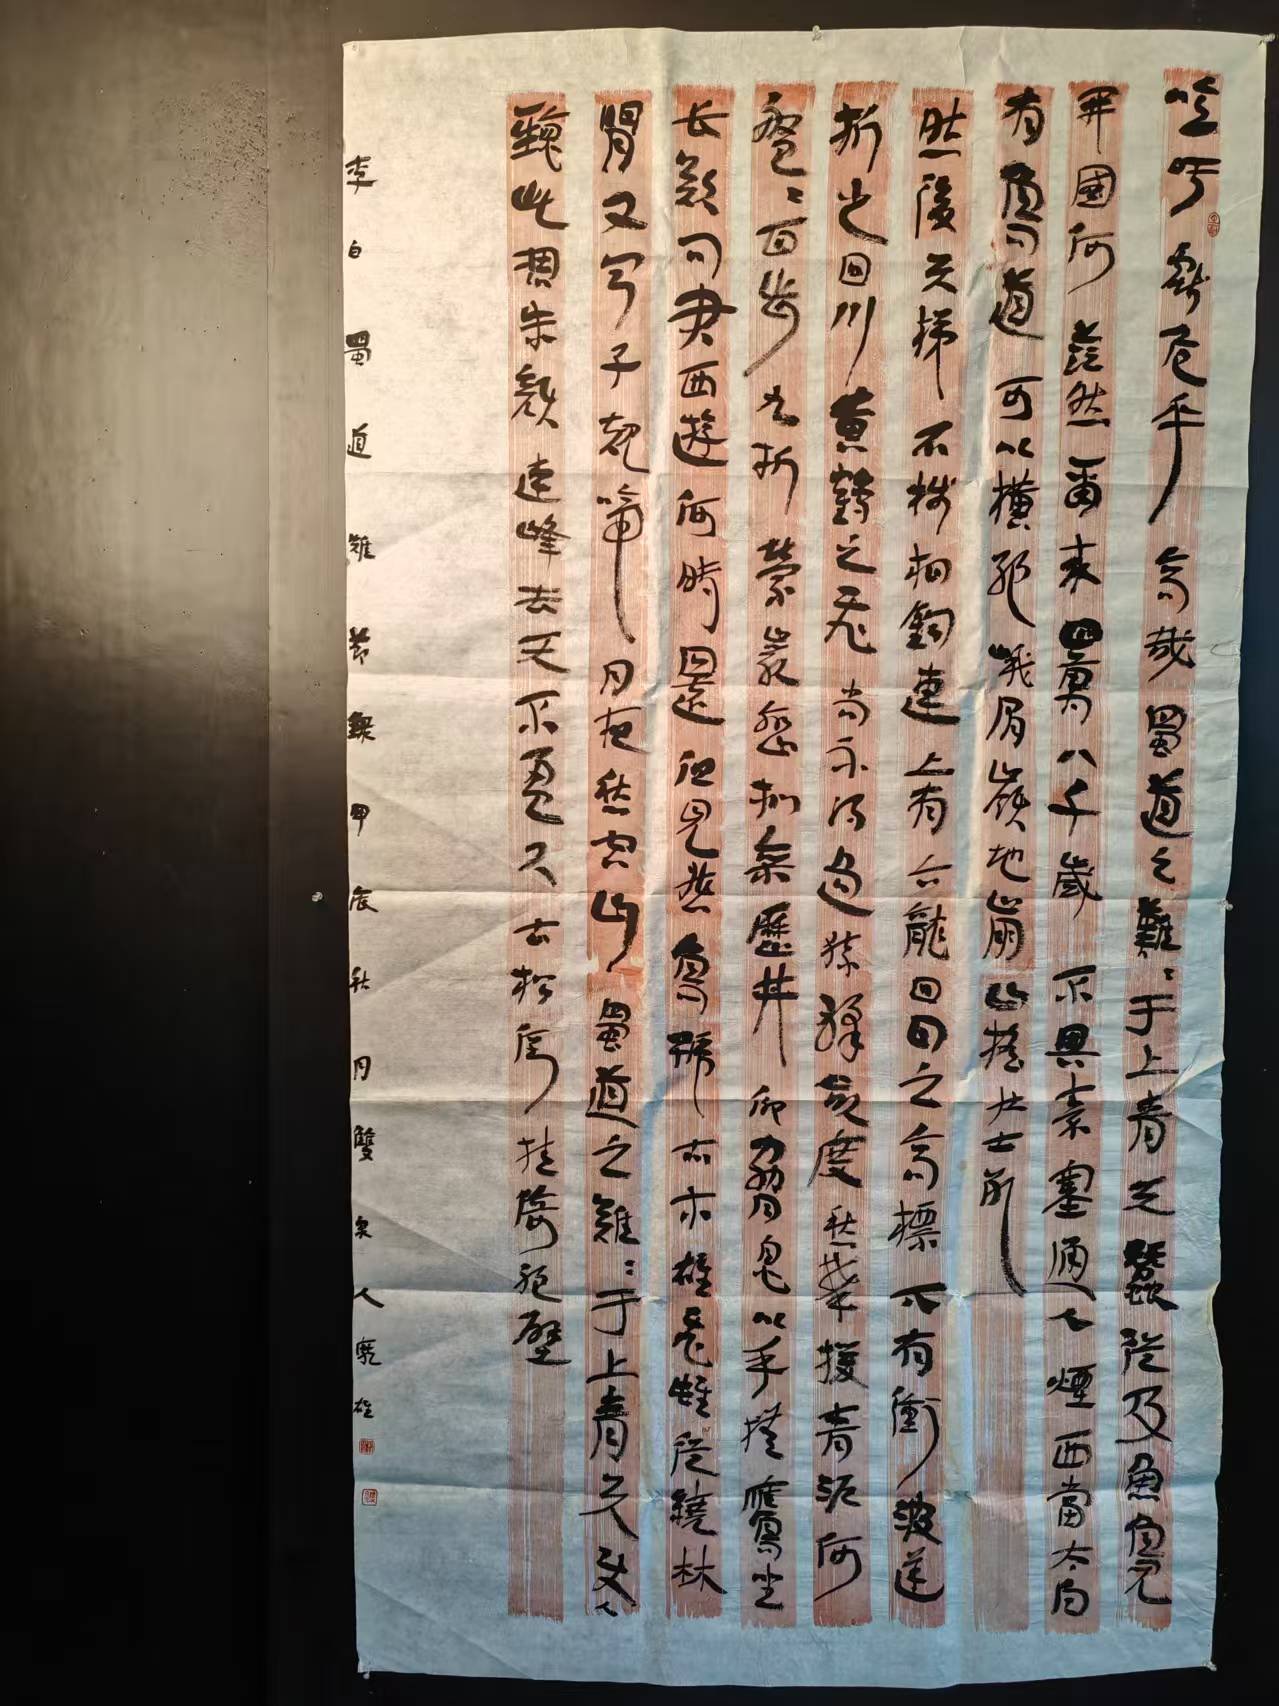 噫吁戲危乎高哉蜀道之難〻于上青天蠶從及魚鳧
開國何茫然爾來四萬八千歲不與秦塞通人煙西當太白
有鳥道可以橫絕峨眉巔地崩山搖壯士死
然後天梯石棧相鉤連上有六龍回日之高標下有衝波逆
折之回川黃鶴之飛尚不得過猿猱欲度愁攀援青泥何
盤〻百步九折縈巖巒捫參歷井仰脅息以手撫膺坐
長歎問君西遊何時還但見悲鳥號古木雄飛雌從繞林
間又聞子規啼月夜愁空山蜀道之難〻于上青天使人
聽此凋朱顏連峰去天不盈尺枯松倒挂倚絕壁
李白蜀道難節錄甲辰秋月雙泉人雄